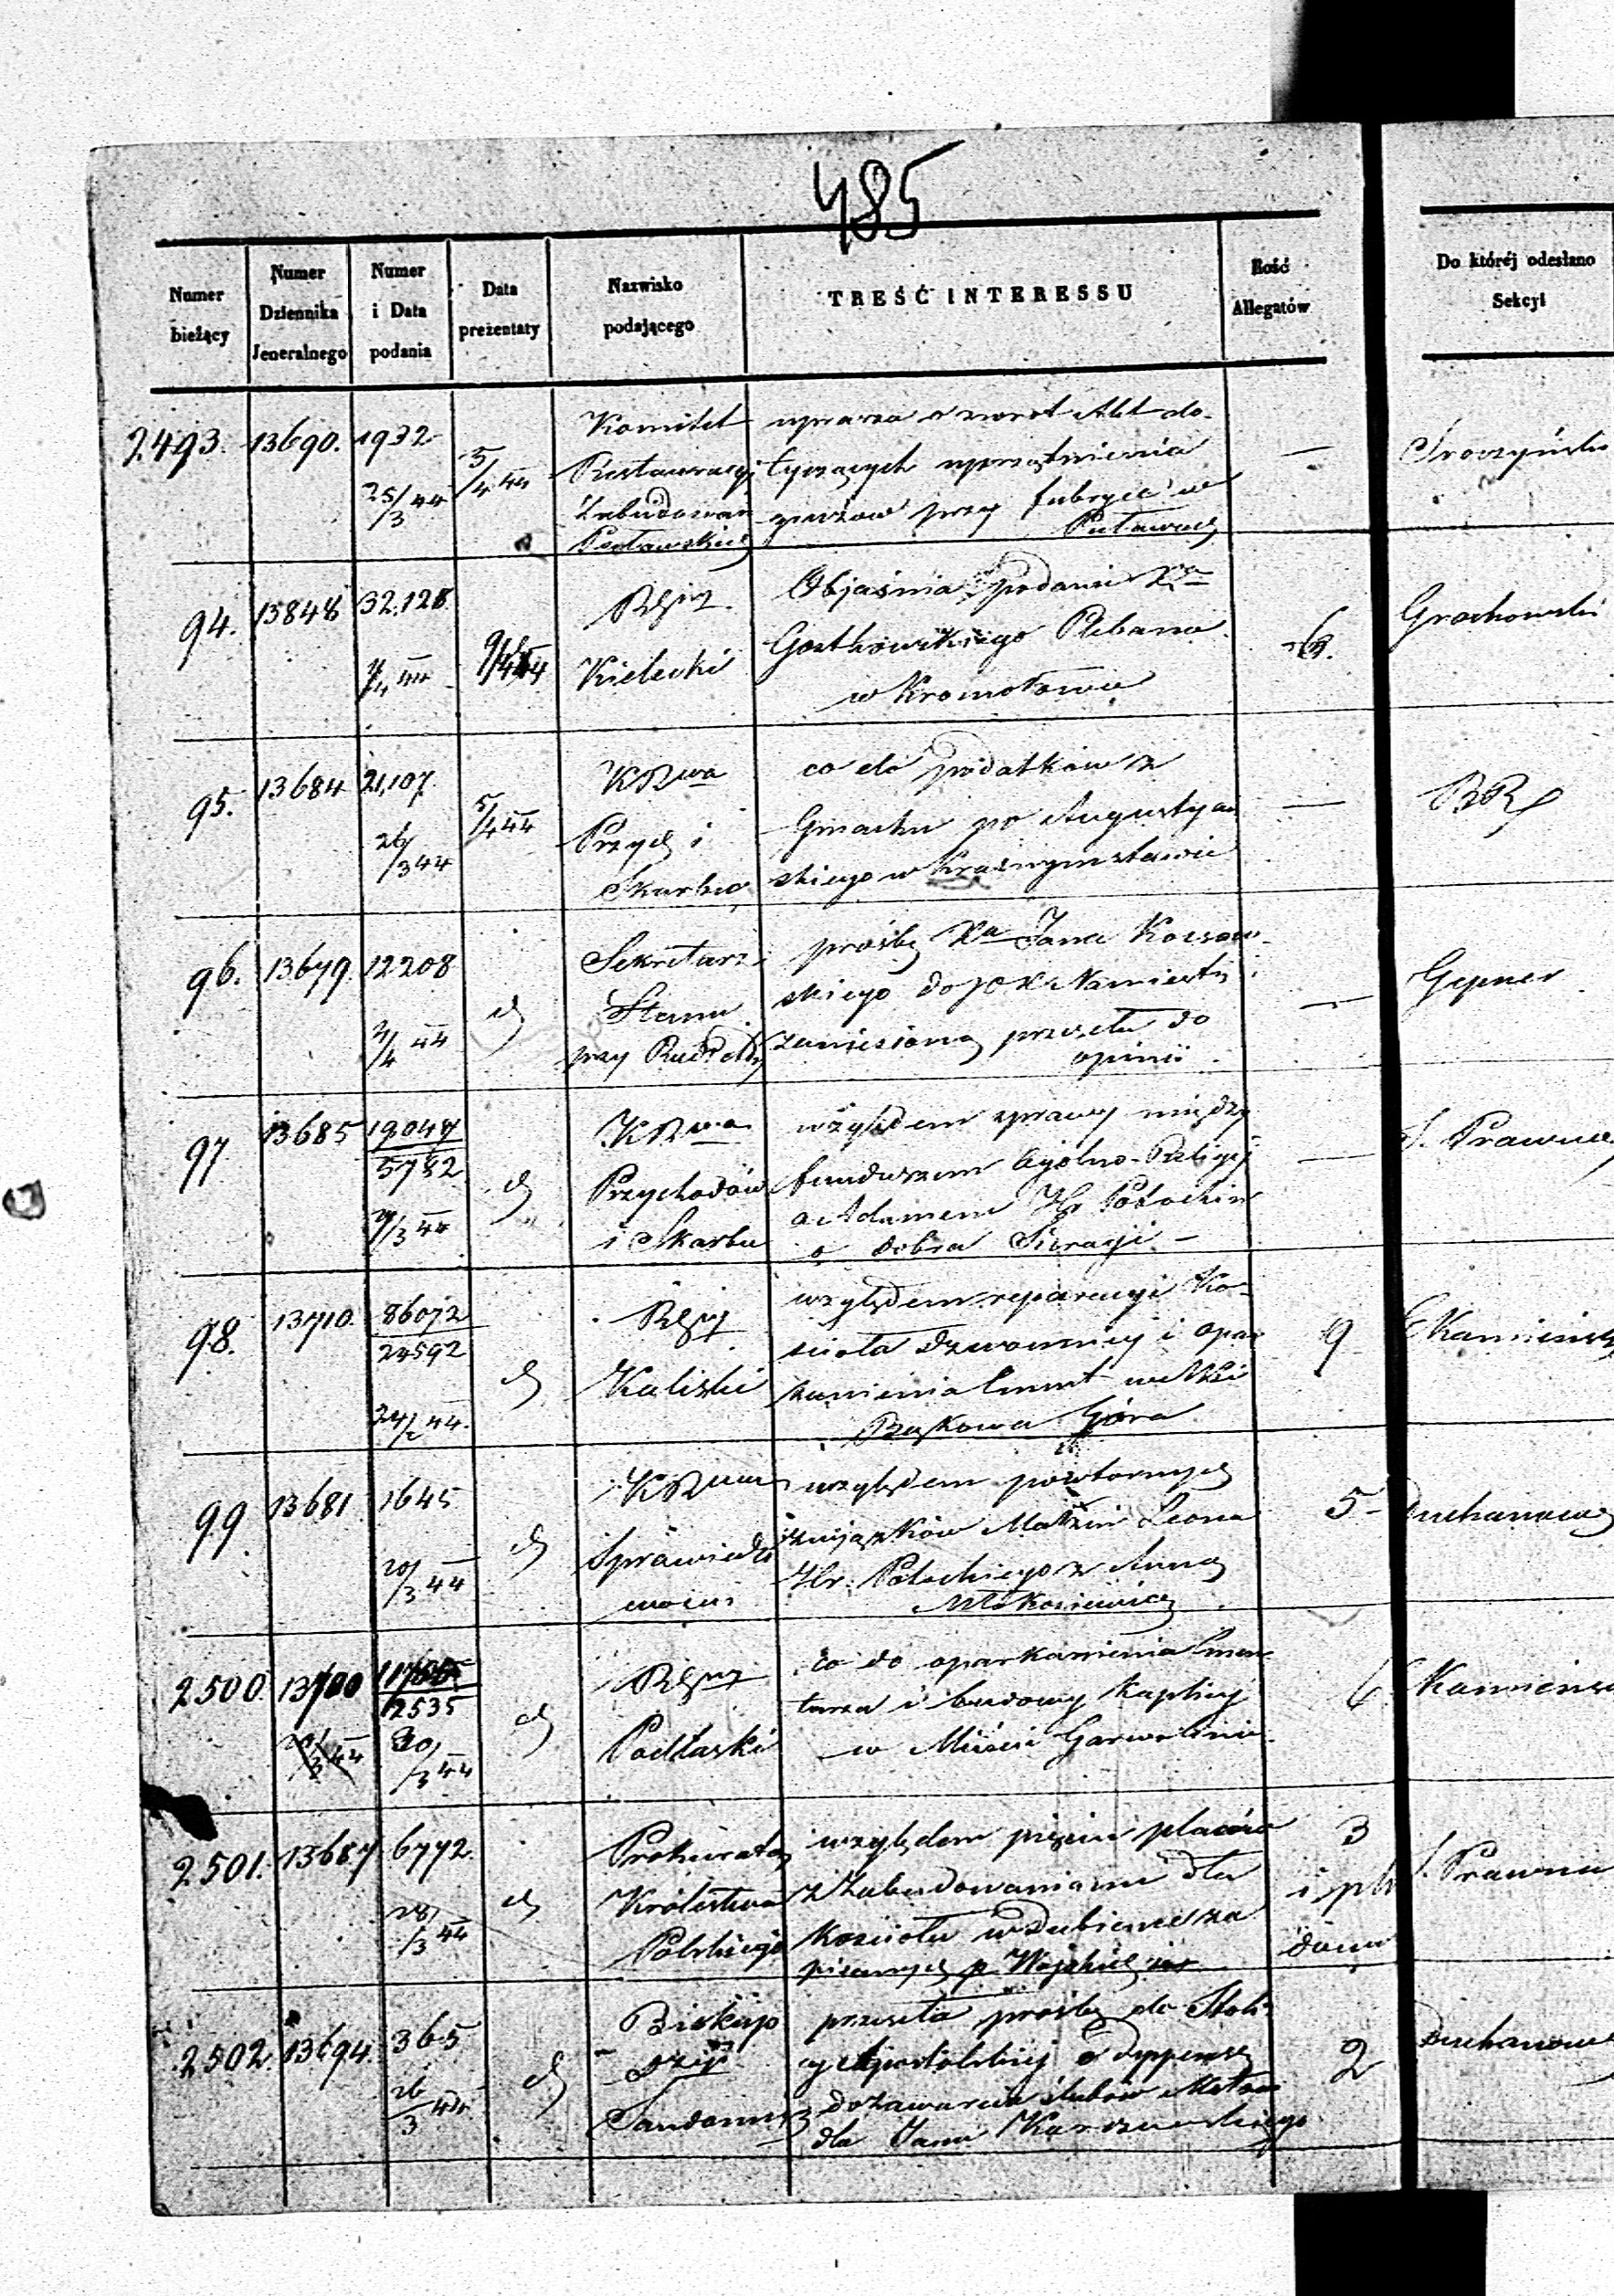 485
Numer bieżący
Numer Dziennika Jeneralnego
Numer i Data podania
Data prezentaty
Nazwisko podającego
TREŚĆ INTERESSU
Ilość Allegatów
Do któréj odesłano Sekcyi
2493. 13690. 1932 25/3 44 5/4 44
Komitet
Restauracyi
Zabudowań
Puławskich
uprasza o zwrot Akt do-
tyczących uprzątnienia
gruzów przy fabryce w
Puławach
—
94. 13848 32.128. 4/4 44 9/4 44
Rząd
Kielecki
Objaśnia podanie Xa
Gostkowskiego Plebana
w Kromołowie
6.
Grochowski
95. 13684 21,107. 26/3 44 5/4 44
KRwa
Przych i
Skarbu
co do podatków z
Gmachu po Augustyań
skiego w Krasnymstawie
—
96. 13679. 12208 2/4 44 d
Sekretarz
Stanu
przy Radzie
prośbę Xa Jana Kossow-
skiego do JOX Namiestn
zaniesioną przesyła do
opinii
—
Gepner
97. 13685 19047/5782 27/3 44 d
KRwa
Przychodów
i Skarbu
względem sprawy między
funduszem Ogólno-Religij
a Adamem Hr Potockim
o dobra
—
S. Prawna
98. 13710. 86072/24592 24/2 44. d
Rząd
Kaliski
względem reparacyi Ko-
ścioła dzwonnicy i opar
kanienia Cment we Wsi
Bąkowa Góra
9
Kamieński
99. 13681 1645 20/3 44 d
KR
Sprawiedli
wości
względem powtórnych
związków Małżeń Leona
Hr. Potockiego z Anną
5-
2500. 13700 12535 30/3 44 d
Rząd
Podlaski
co do oparkanienia Cmen
tarza i budowy kaplicy
w Mieście Garwolinie.
6
Kamieński
2501. 13687 6772 28/3 44 d
Prokurator
Królestwa
Polskiego
względem pięciu placów
z Zabudowaniami dla
Kościoła w Dubience za
pisanych p.
3
i
S. Prawna
2502. 13694. 365 26/3 44 d
Biskup
Dyec
Sandomir
przesyła prośbę do Stoli
cy Apostolskiej o dyspensę
do zawarcia ślubów Małżeń
dla Jana Karczewskiego
2